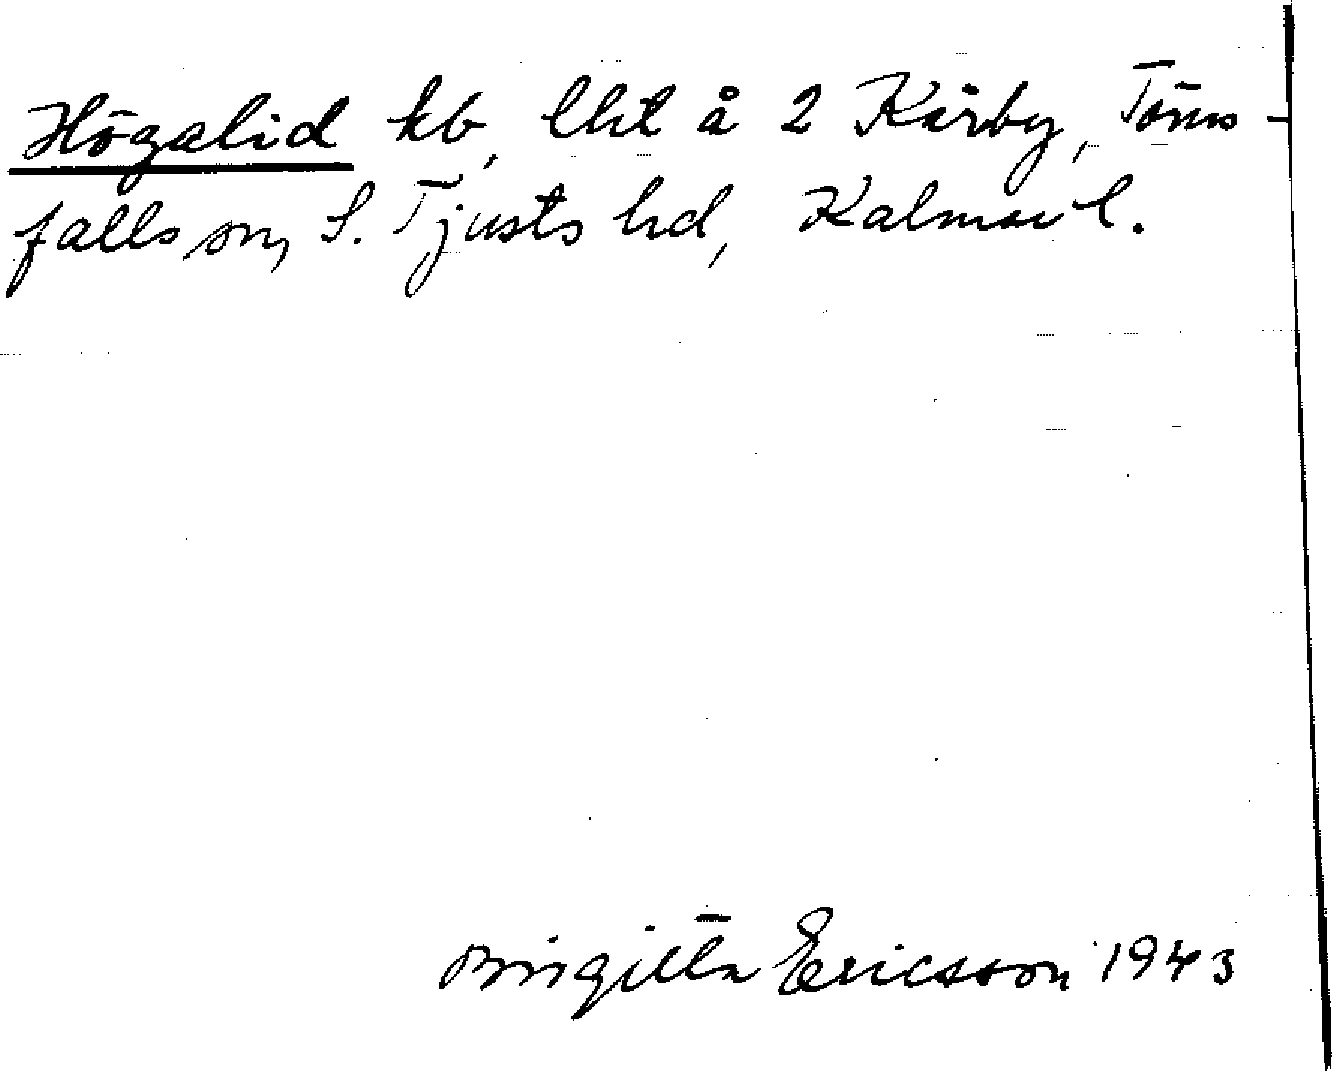 Högalid kb, lht å 2 Kärby, Törns-
falls sn, S. Tjusts hd, Kalmar l.
Birgitta Ericsson 1943